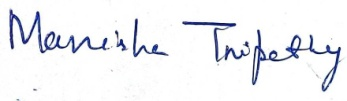 Manisha Tripathy